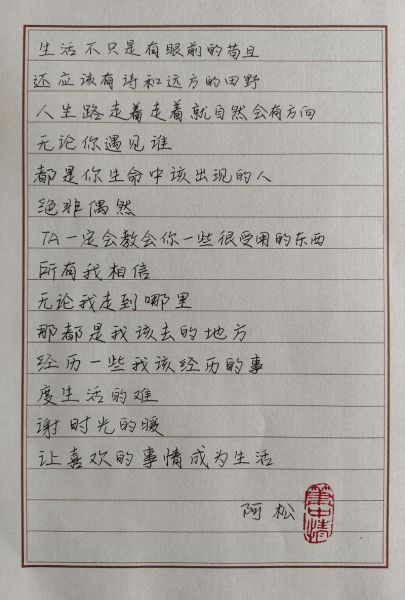 生活不只是有眼前的苟且
还应该有诗和远方的田野
人生路走着走着就自然会有方向
无论你遇见谁
都是你生命中该出现的人
绝非偶然
TA一定会教会你一些很受用的东西
所有我相信
无论我走到哪里
那都是我该去的地方
经历一些我该经历的事
度生活的难
谢时光的暖
让喜欢的事情成为生活
阿松
笔中情